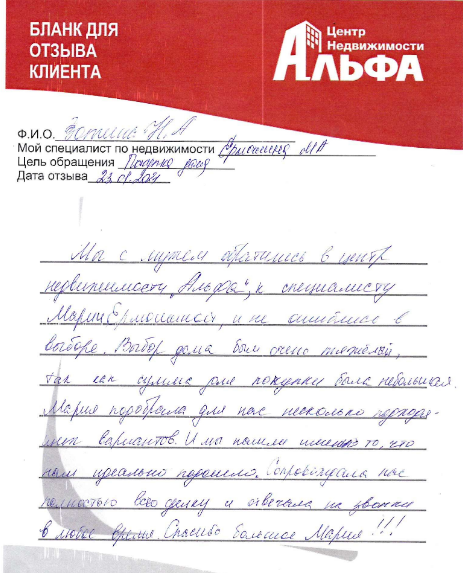 БЛАНК ДЛЯ
ОТЗЫВА
КЛИЕНТА
Центр
Недвижимости
АЛЬФА
Ф.И.О. Н.А
Мой специалист по недвижимости М А
Цель обращения Покупка дома
Дата отзыва
Мы с мужем обратились в центр
недвижимости „Альфа“, к специалисту
Марии Ермошиной, и не ошиблись в
выборе. Выбор дома был очень тяжёлый,
так как сумма для покупки была небольшая.
Мария подобрала для нас несколько подходя-
щих вариантов. И мы нашли именно то, что
нам идеально подошло. Сопровождала нас
полностью всю сделку и отвечала на звонки
в любое время. Спасибо большое Мария!!!